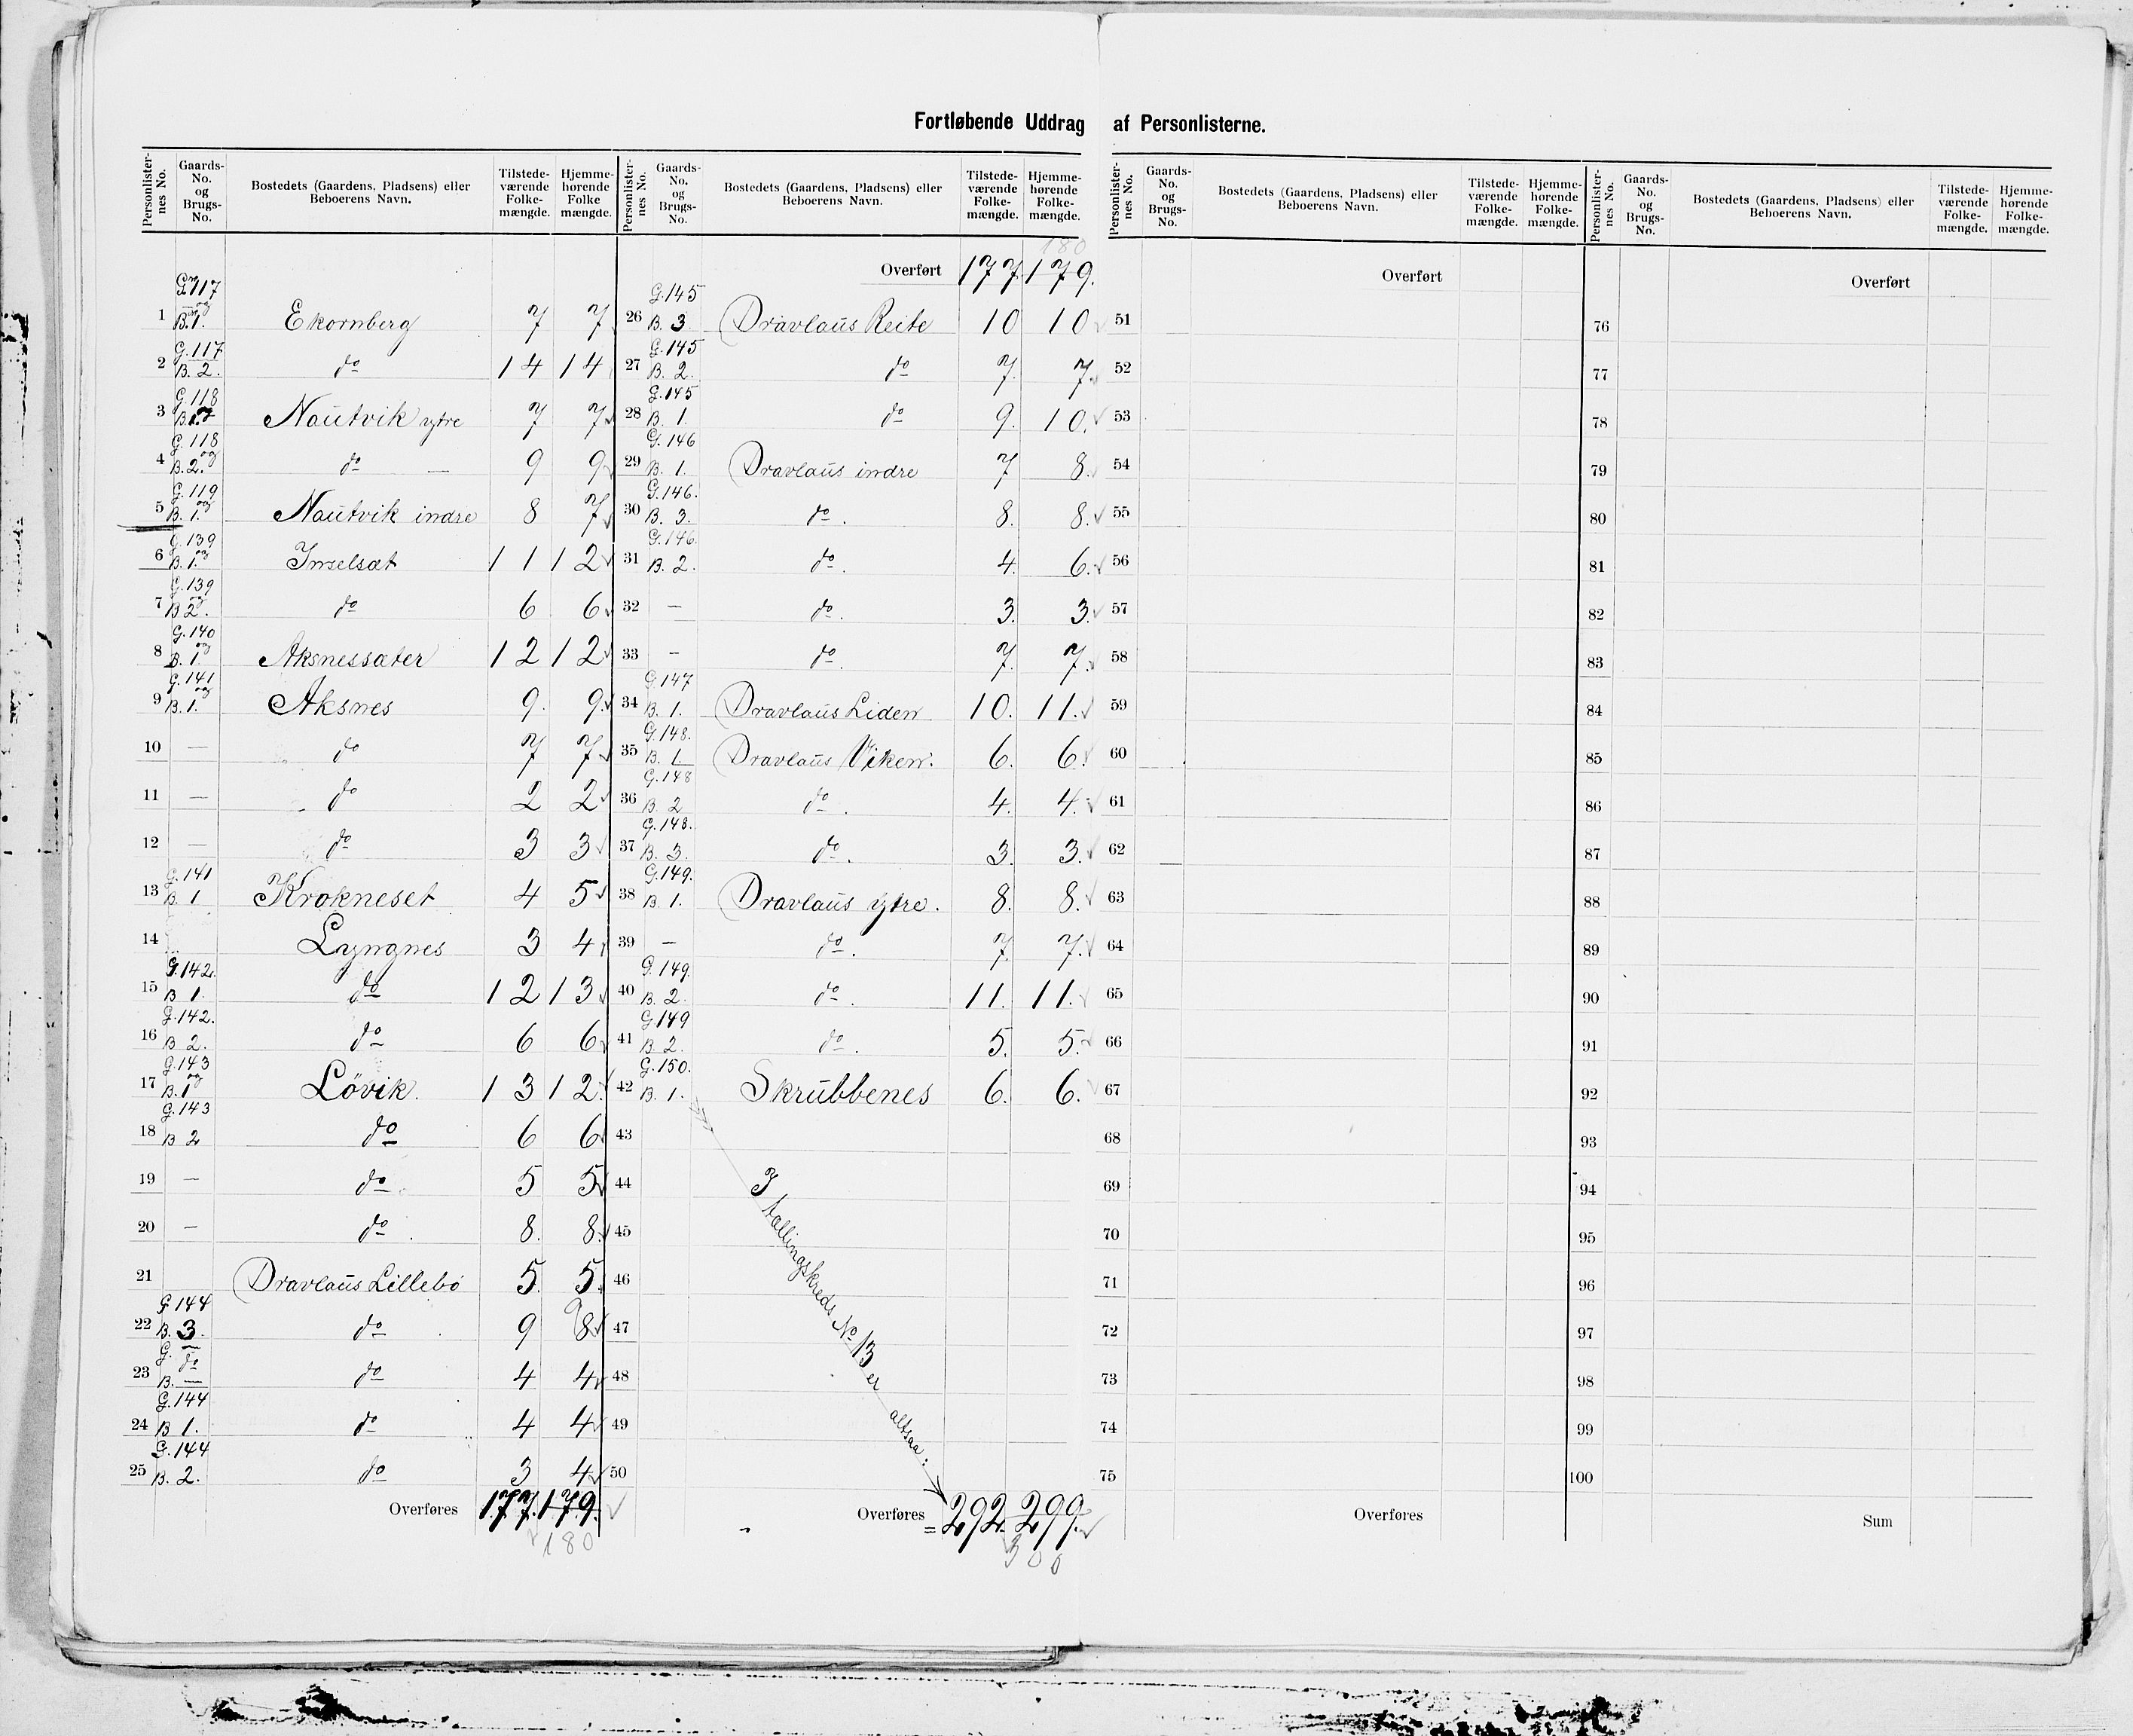 Fortløbende Uddrag af Personlisterne.
Personlister-nes No. Gaards-No. og Brugs-No. Bostedets (Gaardens, Pladsens) eller Beboerens Navn. Tilstede-værende Folke-mængde. Hjemme-hørende Folke mængde.
1 G. 117 og B. 1. Ekornberg 7 7
2 G. 117 B. 2. do 14 14
3 G. 118 Nautvik ytre 7 7
4 G. 118 og B. 2. do — 9 9
5 G. 119 og B. 1. Nautvik indre 8 7
6 G. 139 og B. 1. Inselsæt 11 12
7 G. 139 og B 2. do 6 6
8 G. 140 og B. 1. Aksnessæter 12 12
9 G. 141 og B. 1. Aksnes 9. 9.
10 — do 7 7
11 — do 2 2
12 — do 3 3
13 G. 141 B. 1 Krokneset 4 5
14 Lyngnes 3 4
15 G. 142. B 1. do 12 13
16 G. 142. B 2. do 6 6
17 G. 143 og B. 1 Lövik. 13 12.
18 G. 143 B 2 do 6 6
19 — do 5 5
20 — do 8. 8.
21 Dravlaus Lillebö 5. 5.
22 G. 144 B. 3. do 9 8 9
23 G. do B. — do 4 4
24 G. 144 B 1. do 4 4
25 G. 144 B. 2. do 3 4
Overføres 177. 179.
180
Personlister-nes No. Gaards-No. og Brugs-No. Bostedets (Gaardens, Pladsens) eller Beboerens Navn. Tilstede-værende Folke-mængde. Hjemme-hørende Folke-mængde.
180
Overført 177 179.
26 G. 145 B. 3. Dravlaus Reite 10 10
27 G. 145 B. 2. do 7. 7.
28 G. 145 B. 1. do 9. 10.
29 G. 146 B. 1. Dravlaus indre 7 8.
30 G. 146. B. 3. do. 8. 8.
31 G. 146. B. 2. do. 4. 6.
32 — do. 3. 3.
33 — do. 7. 7.
34 G. 147 B. 1. Dravlaus Liden 10. 11.
35 G. 148. B. 1. Dravlaus Viken. 6. 6.
36 G. 148 B. 2 do. 4. 4.
37 G. 148. B. 3. do. 3. 3.
38 G. 149. B. 1. Dravlaus ytre. 8. 8.
39 — do. 7. 7.
40 G. 149. B. 2. do. 11. 11.
41 G 149 B 2. do. 5. 5.
42 G. 150. B. 1. Skrubbenes 6. 6.
43
44
45
46
47
48
49
50
I tællingskreds No 13 er altsaa:
Overføres = 292. 299.
300
Personlister-nes No. Gaards-No. og Brugs-No. Bostedets (Gaardens, Pladsens) eller Beboerens Navn. Tilstede-værende Folke-mængde. Hjemme-hørende Folke-mængde.
Overført
51
52
53
54
55
56
57
58
59
60
61
62
63
64
65
66
67
68
69
70
71
72
73
74
75
Overføres
Personlister-nes No. Gaards-No. og Brugs-No. Bostedets (Gaardens, Pladsens) eller Beboerens Navn. Tilstede-værende Folke-mængde. Hjemme-hørende Folke-mængde.
Overført
76
77
78
79
80
81
82
83
84
85
86
87
88
89
90
91
92
93
94
95
96
97
98
99
100
Sum